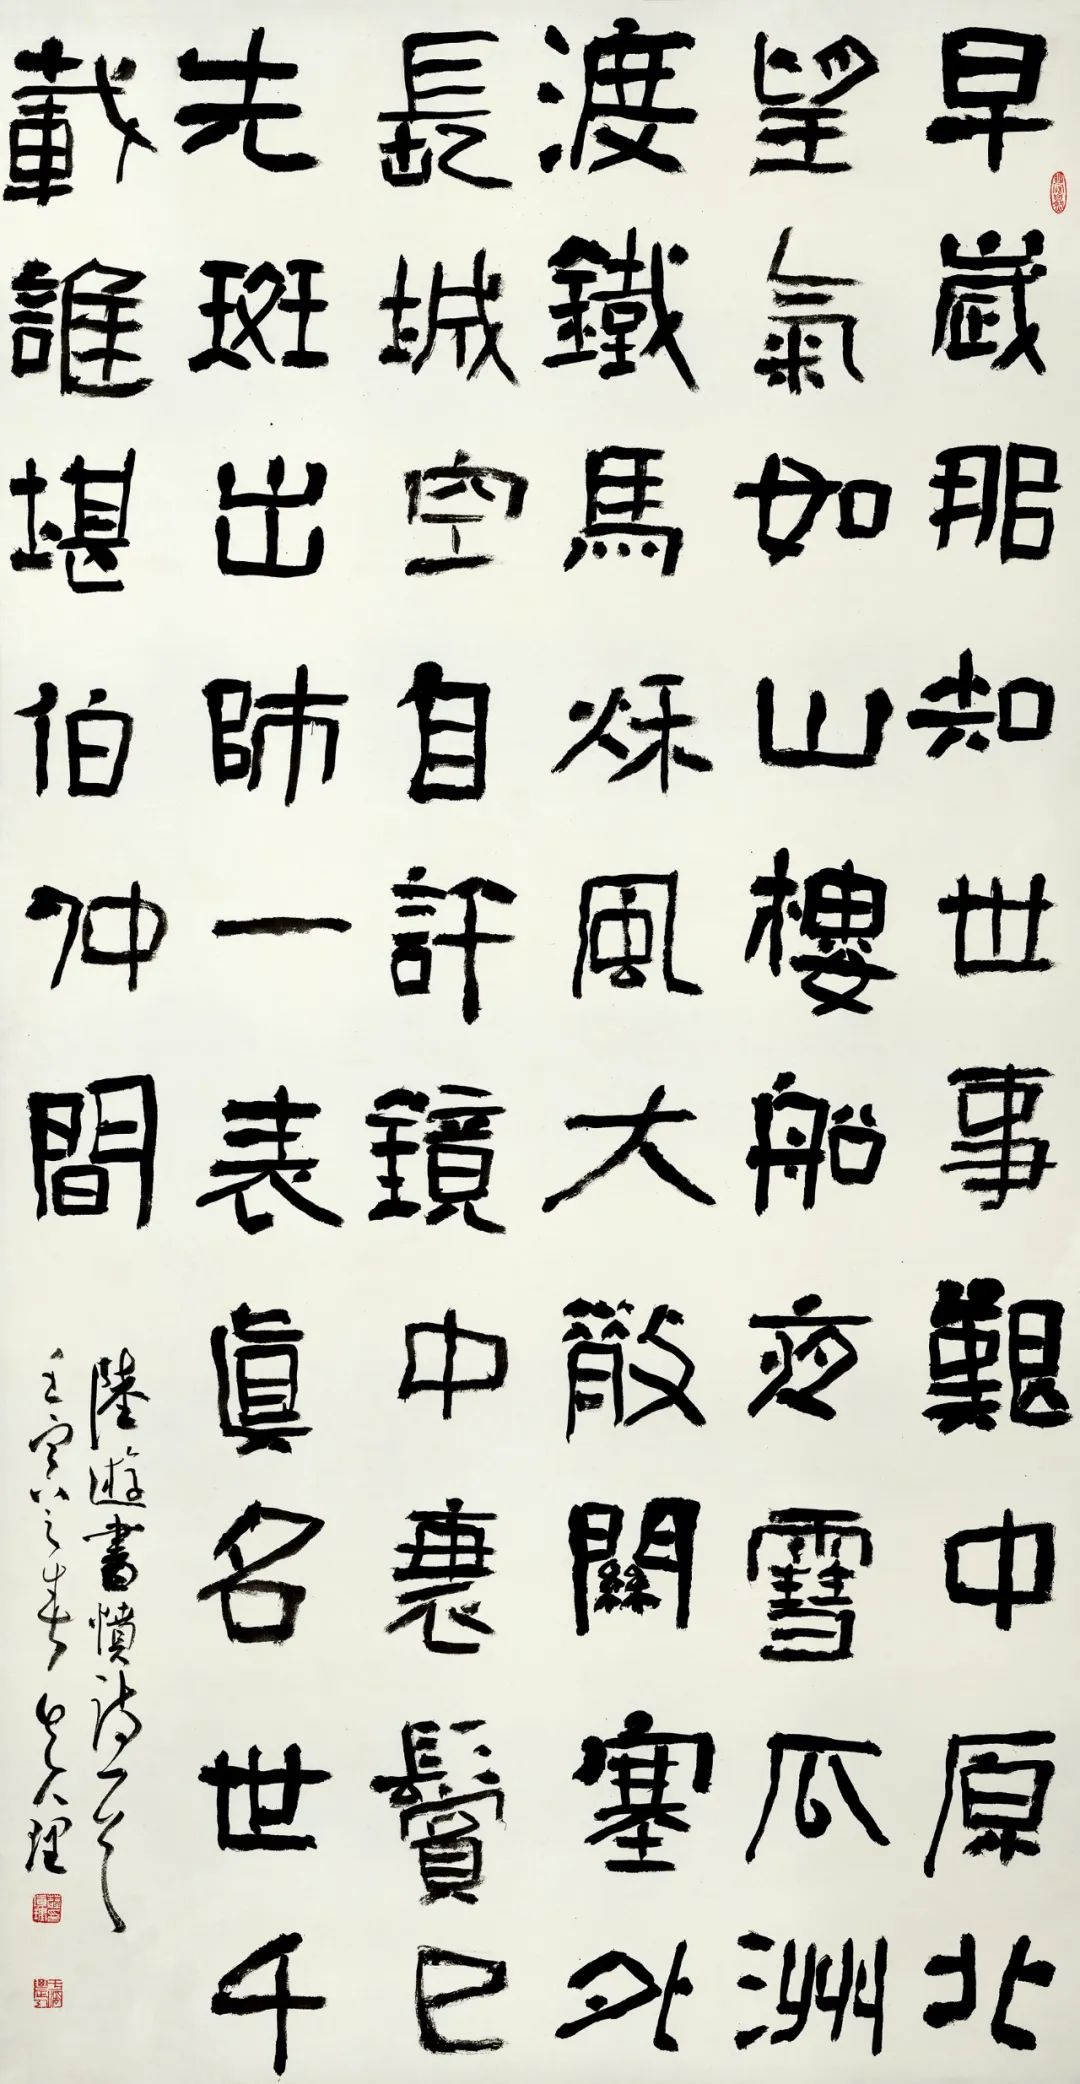 早歲那知世事艱中原北
望氣如山樓船夜雪瓜洲
渡鐵馬秌風大散關塞外
長城空自許鏡中衰鬢已
先斑出師一表眞名世千
載誰堪伯仲間
陸遊書憤詩一首
壬寅之春